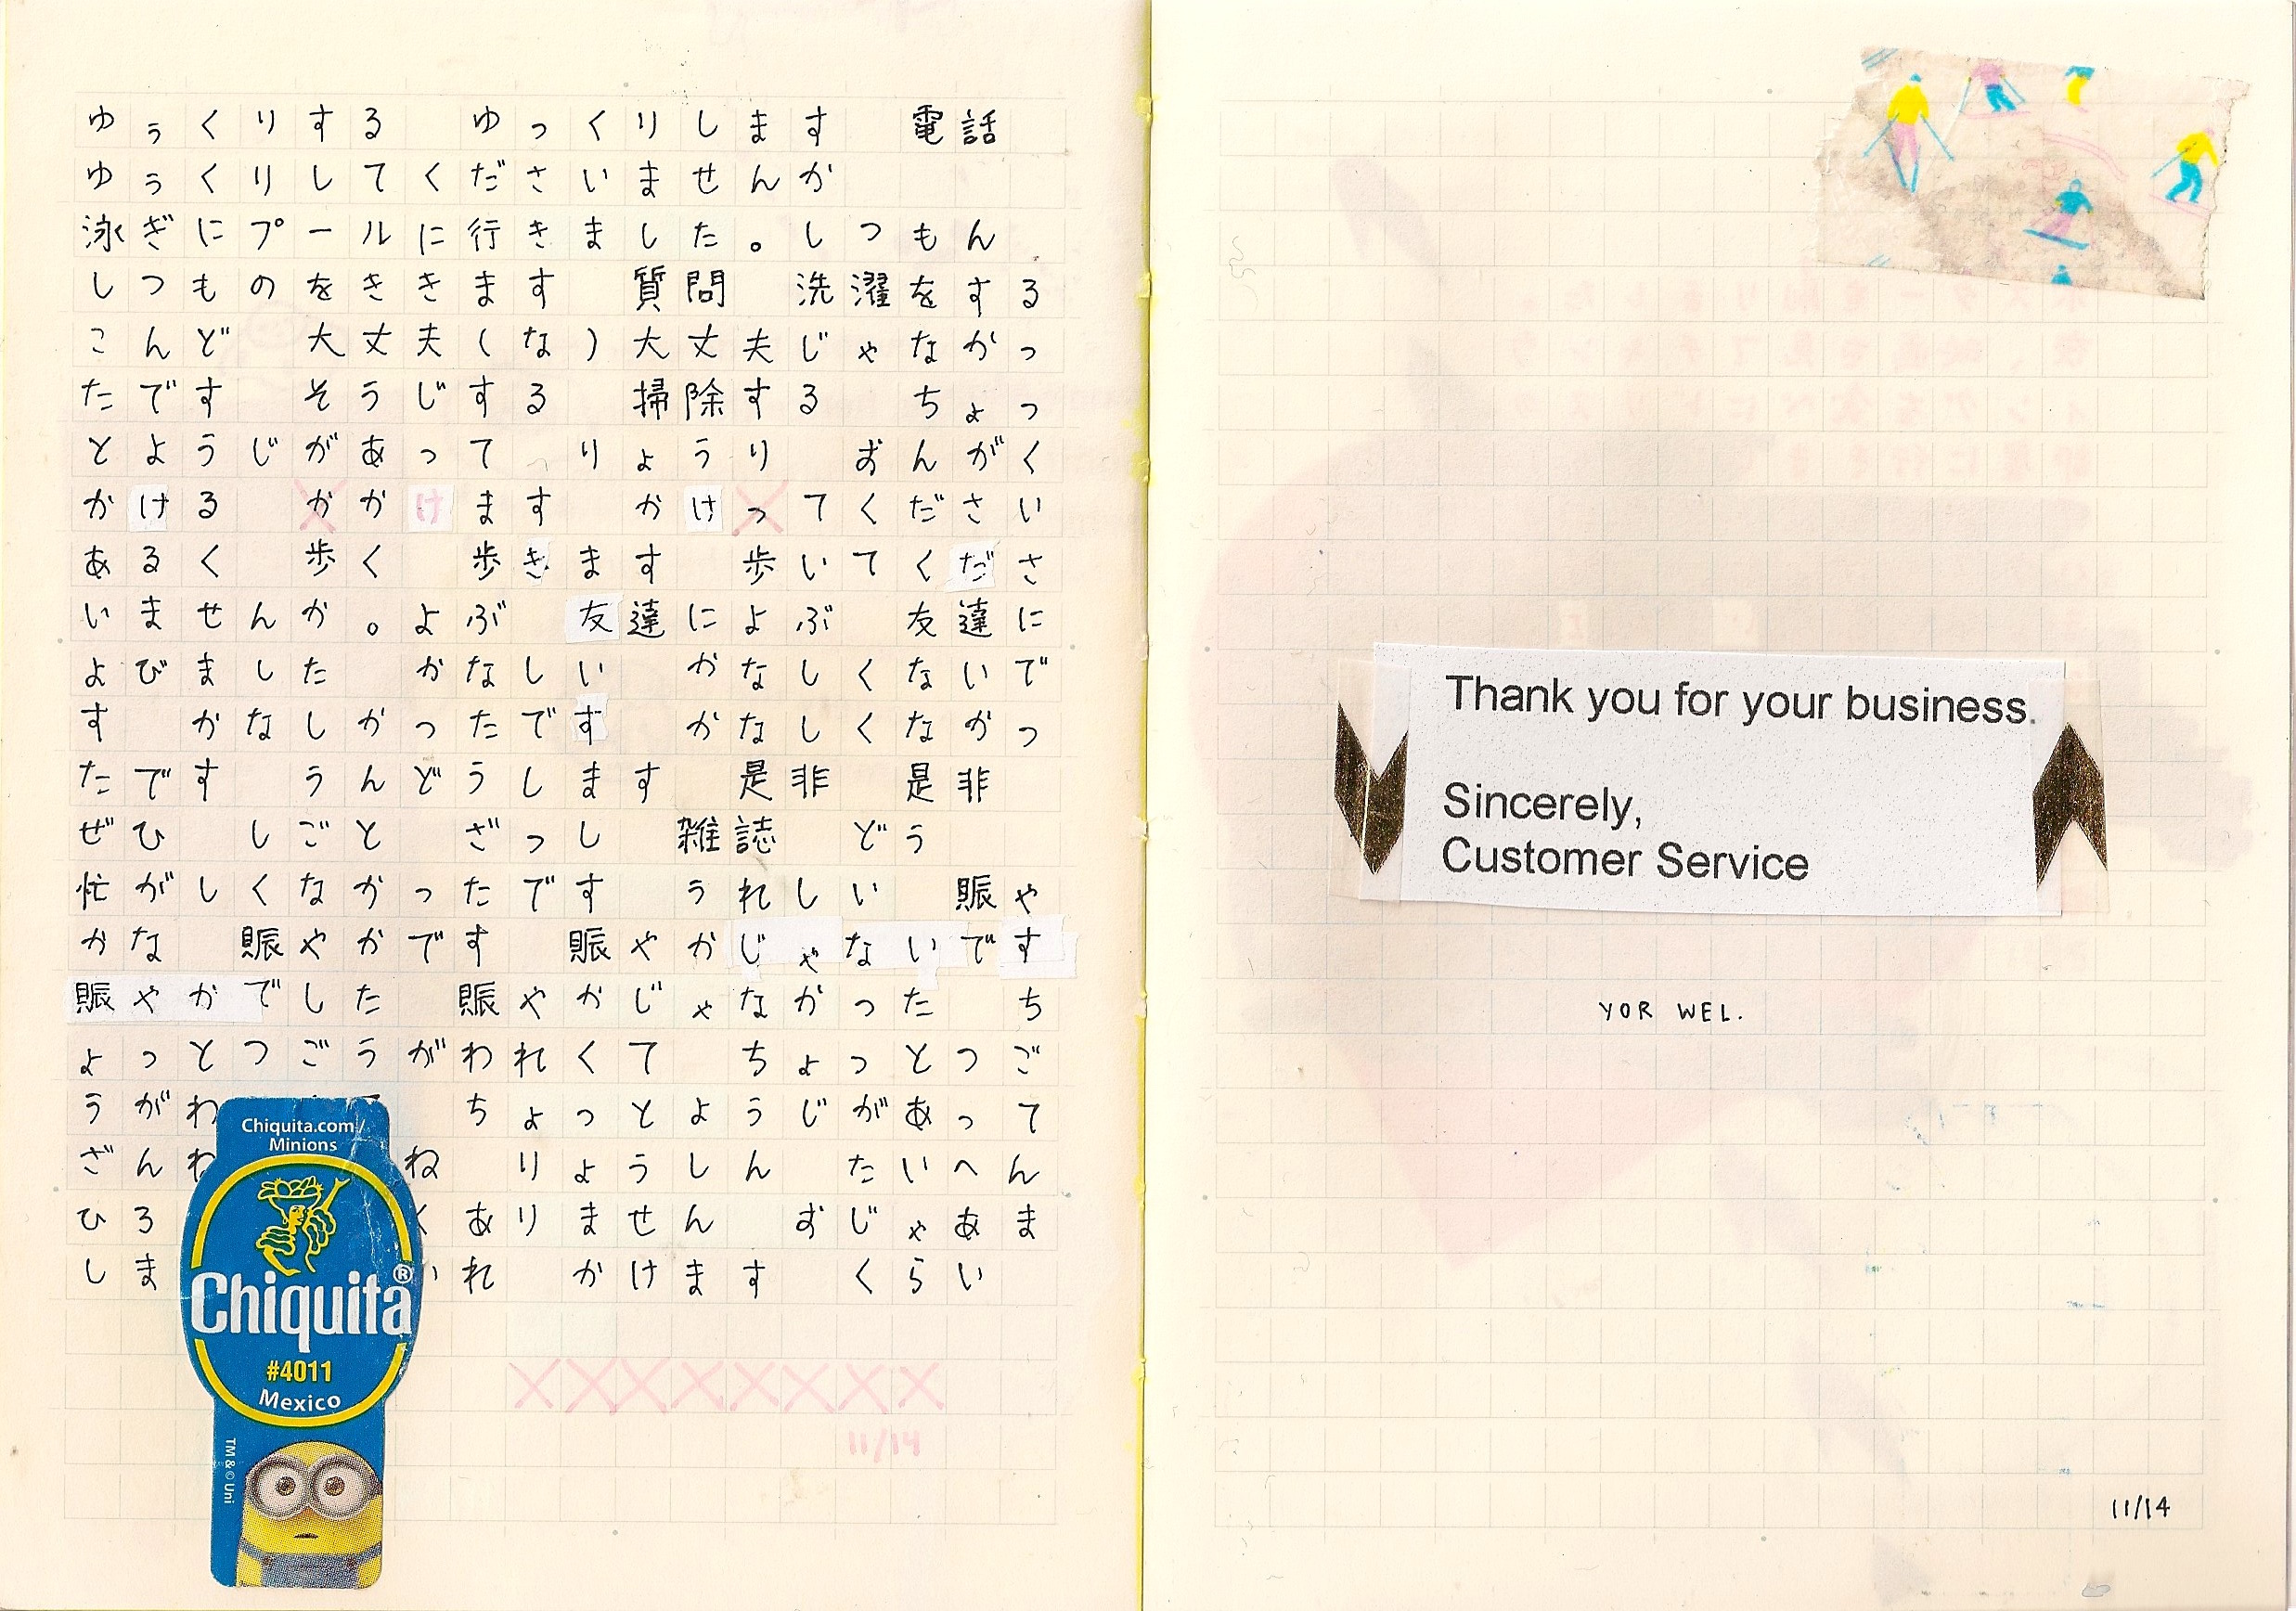 ゆぅくりする　ゆっくりします　電話
ゆぅくりしてくださいませんか
泳ぎにプールに行きました。しつもん
しつものをききます　質問　洗濯をする
こんど　大丈夫(な)大丈夫じゃなかっ
たです　そうじする　掃除する　ちょっ
とようじがあって　りょうり　おんがく
かける　かかけます　かけってください
あるく　歩く　歩きます　歩いてくださ
いませんか。よぶ　友達によぶ　友達に
よびました　かなしい　かなしくないで
す　かなしかったです　かなしくなかっ
たです　うんどうします　是非　是非
ぜひ　しごと　ざっし　雑誌　どう
忙がしくなかったです　うれしい　賑や
かな　賑やかです　賑やかじゃないです
賑やかでした　賑やかじゃなかった　ち
ょっとつごうがわれくて　ちょっとつご
うがわ　ちょっとようじがあって
ざんね　りょうしん　たいへん
ひろ　くありません　おじゃあま
しま　れ　かけます　くらい
11/14
Chiquita.com/
Minions
Chiquita®
#4011
Mexico
TM & © Uni
Thank you for your business.
Sincerely,
Customer Service
YOR WEL.
11/14